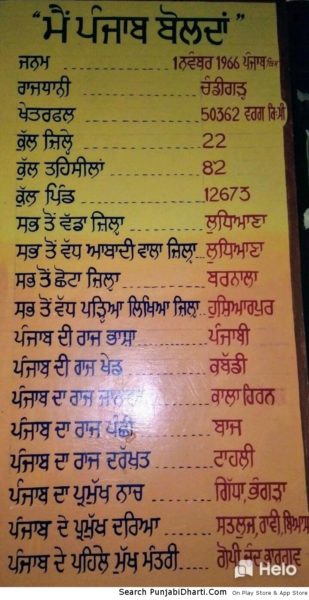 “ਮੈਂ ਪੰਜਾਬ ਬੋਲਦਾਂ”
ਜਨਮ ............ 1 ਨਵੰਬਰ 1966 ਪੰਜਾਬ
ਰਾਜਧਾਨੀ ............ ਚੰਡੀਗੜ੍ਹ
ਖੇਤਰਫਲ ............ 50362 ਵਰਗ ਕਿ:ਮੀ
ਕੁੱਲ ਜ਼ਿਲ੍ਹੇ ............ 22
ਕੁੱਲ ਤਹਿਸੀਲਾਂ ............ 82
ਕੁੱਲ ਪਿੰਡ ............ 12673
ਸਭ ਤੋਂ ਵੱਡਾ ਜ਼ਿਲ੍ਹਾ ............ ਲੁਧਿਆਣਾ
ਸਭ ਤੋਂ ਵੱਧ ਆਬਾਦੀ ਵਾਲਾ ਜ਼ਿਲ੍ਹਾ ... ਲੁਧਿਆਣਾ
ਸਭ ਤੋਂ ਛੋਟਾ ਜ਼ਿਲ੍ਹਾ ............ ਬਰਨਾਲਾ
ਸਭ ਤੋਂ ਵੱਧ ਪੜ੍ਹਿਆ ਲਿਖਿਆ ਜ਼ਿਲ੍ਹਾ ... ਹੁਸ਼ਿਆਰਪੁਰ
ਪੰਜਾਬ ਦੀ ਰਾਜ ਭਾਸ਼ਾ ............ ਪੰਜਾਬੀ
ਪੰਜਾਬ ਦੀ ਰਾਜ ਖੇਡ ............ ਕਬੱਡੀ
ਪੰਜਾਬ ਦਾ ਰਾਜ ............ ਕਾਲਾ ਹਿਰਨ
ਪੰਜਾਬ ਦਾ ਰਾਜ ਪੰਛੀ ............ ਬਾਜ
ਪੰਜਾਬ ਦਾ ਰਾਜ ਦਰੱਖ਼ਤ ............ ਟਾਹਲੀ
ਪੰਜਾਬ ਦਾ ਪ੍ਰਮੁੱਖ ਨਾਚ ............ ਗਿੱਧਾ, ਭੰਗੜਾ
ਪੰਜਾਬ ਦੇ ਪ੍ਰਮੁੱਖ ਦਰਿਆ ............ ਸਤਲੁਜ, ਰਾਵੀ, ਬਿਆਸ
ਪੰਜਾਬ ਦੇ ਪਹਿਲੇ ਮੁੱਖ ਮੰਤਰੀ ............ ਗੋਪੀ ਚੰਦ ਭਾਰਗਵ
Helo
Search PunjabiDharti.Com On Play Store & App Store